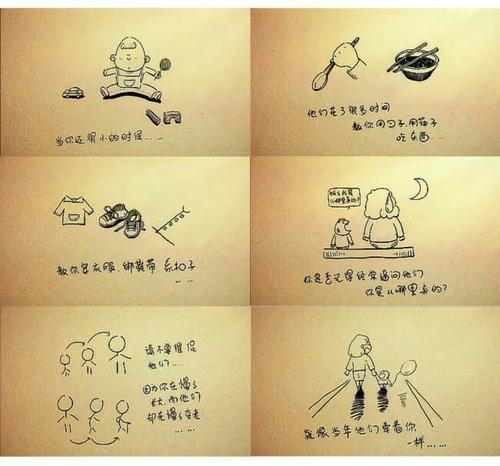 当你还很小的时候……
他们花了很多时间
教你用勺子,用筷子
吃东西…
教你穿衣服,绑鞋带,系扣子
……
妈妈我是
从哪里来的?
你是否记得经常逼问他们
你是从哪里来的?
请不要催促
他们…
因为你在慢慢
长大,而他们
却在慢慢变老
……
就像当年他们牵着你
一样……